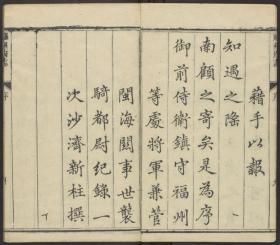 藉手以報
知遇之隆
南顧之寄矣是為序
御前侍衛鎮守福州
等處將軍兼管
閩海關事世襲
騎都尉紀錄一
次沙濟新柱撰
序